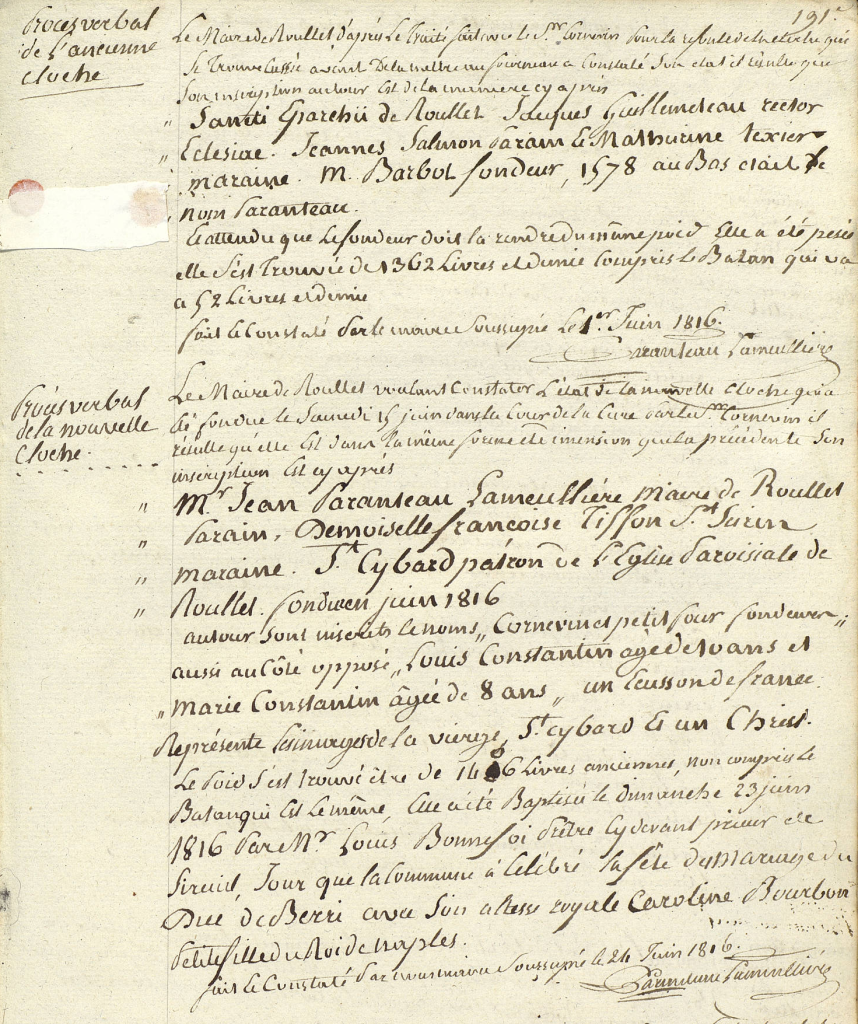 191.
Procès verbal
de l'ancienne
cloche
Le Maire de Roullet d'après Le traité fait avec le S.nr Cornevin pour la refonte de la cloche qui
Se trouve Cassée avant De la mettre au fourneau a Constaté Son etat il résulte que
Son inscription autour Est de la maniere cy après
" Sancti Eparchii de Roullet Jacques Guillemeteau rector
" Eclesiae. Jeannes Salmon parain Et Mathurine texier
" maraine. M. Barbot fondeur, 1578 au Bas etait le
nom paranteau.
Et attendu que Le fondeur doit la rendre du même poid Elle a été pesée
elle S'est trouvée de 1362 Livres et demie Compris le Batan qui va
a 52 Livres et demie
fait Et Constaté par le maire Soussigné Le 1.er Juin 1816.
Paranteau Lameullière
Procès verbal
de la nouvelle
Cloche.
Le Maire de Roullet voulant Constater L'état de la nouvelle Cloche qui a
été fondue le Samedi 15 juin dans la Cour de la Cure par le S.nr Cornevin il
résulte qu'elle Est dans la même forme et dimension que la précédente Son
inscription Est cy après
" M.r Jean Paranteau Lameullière Maire de Roullet
" Parain, Demoiselle francoise Tiffon S.t Surin
" maraine. S.t Cybard patron de L'Eglise Paroissiale de
" Roullet. fondue en juin 1816
autour Sont inscrits le noms " Cornevin et petit four fondeurs ";
aussi au Côté opposé " Louis Constantin agé de 10 ans et
" Marie Constantin âgée de 8 ans " un Ecusson de france.
Représente les images de la vierge, S.t Cybard Et un Christ.
Le poid S'est trouvé être de Livres anciennes, non compris le
Batan qui Est Le même, Elle a été Baptisée le dimanche 23 juin
1816 par M.r Louis Bonnefoi prêtre Cy devant prieur de
Sireuil, Jour que la Commune à Célébré la fête du mariage du
Duc de Berri avec Son altesse royale Caroline Bourbon
petite fille du Roi de naples.
fait Et Constaté par nous maire Soussigné le 24 Juin 1816.
Paranteau Lameullière